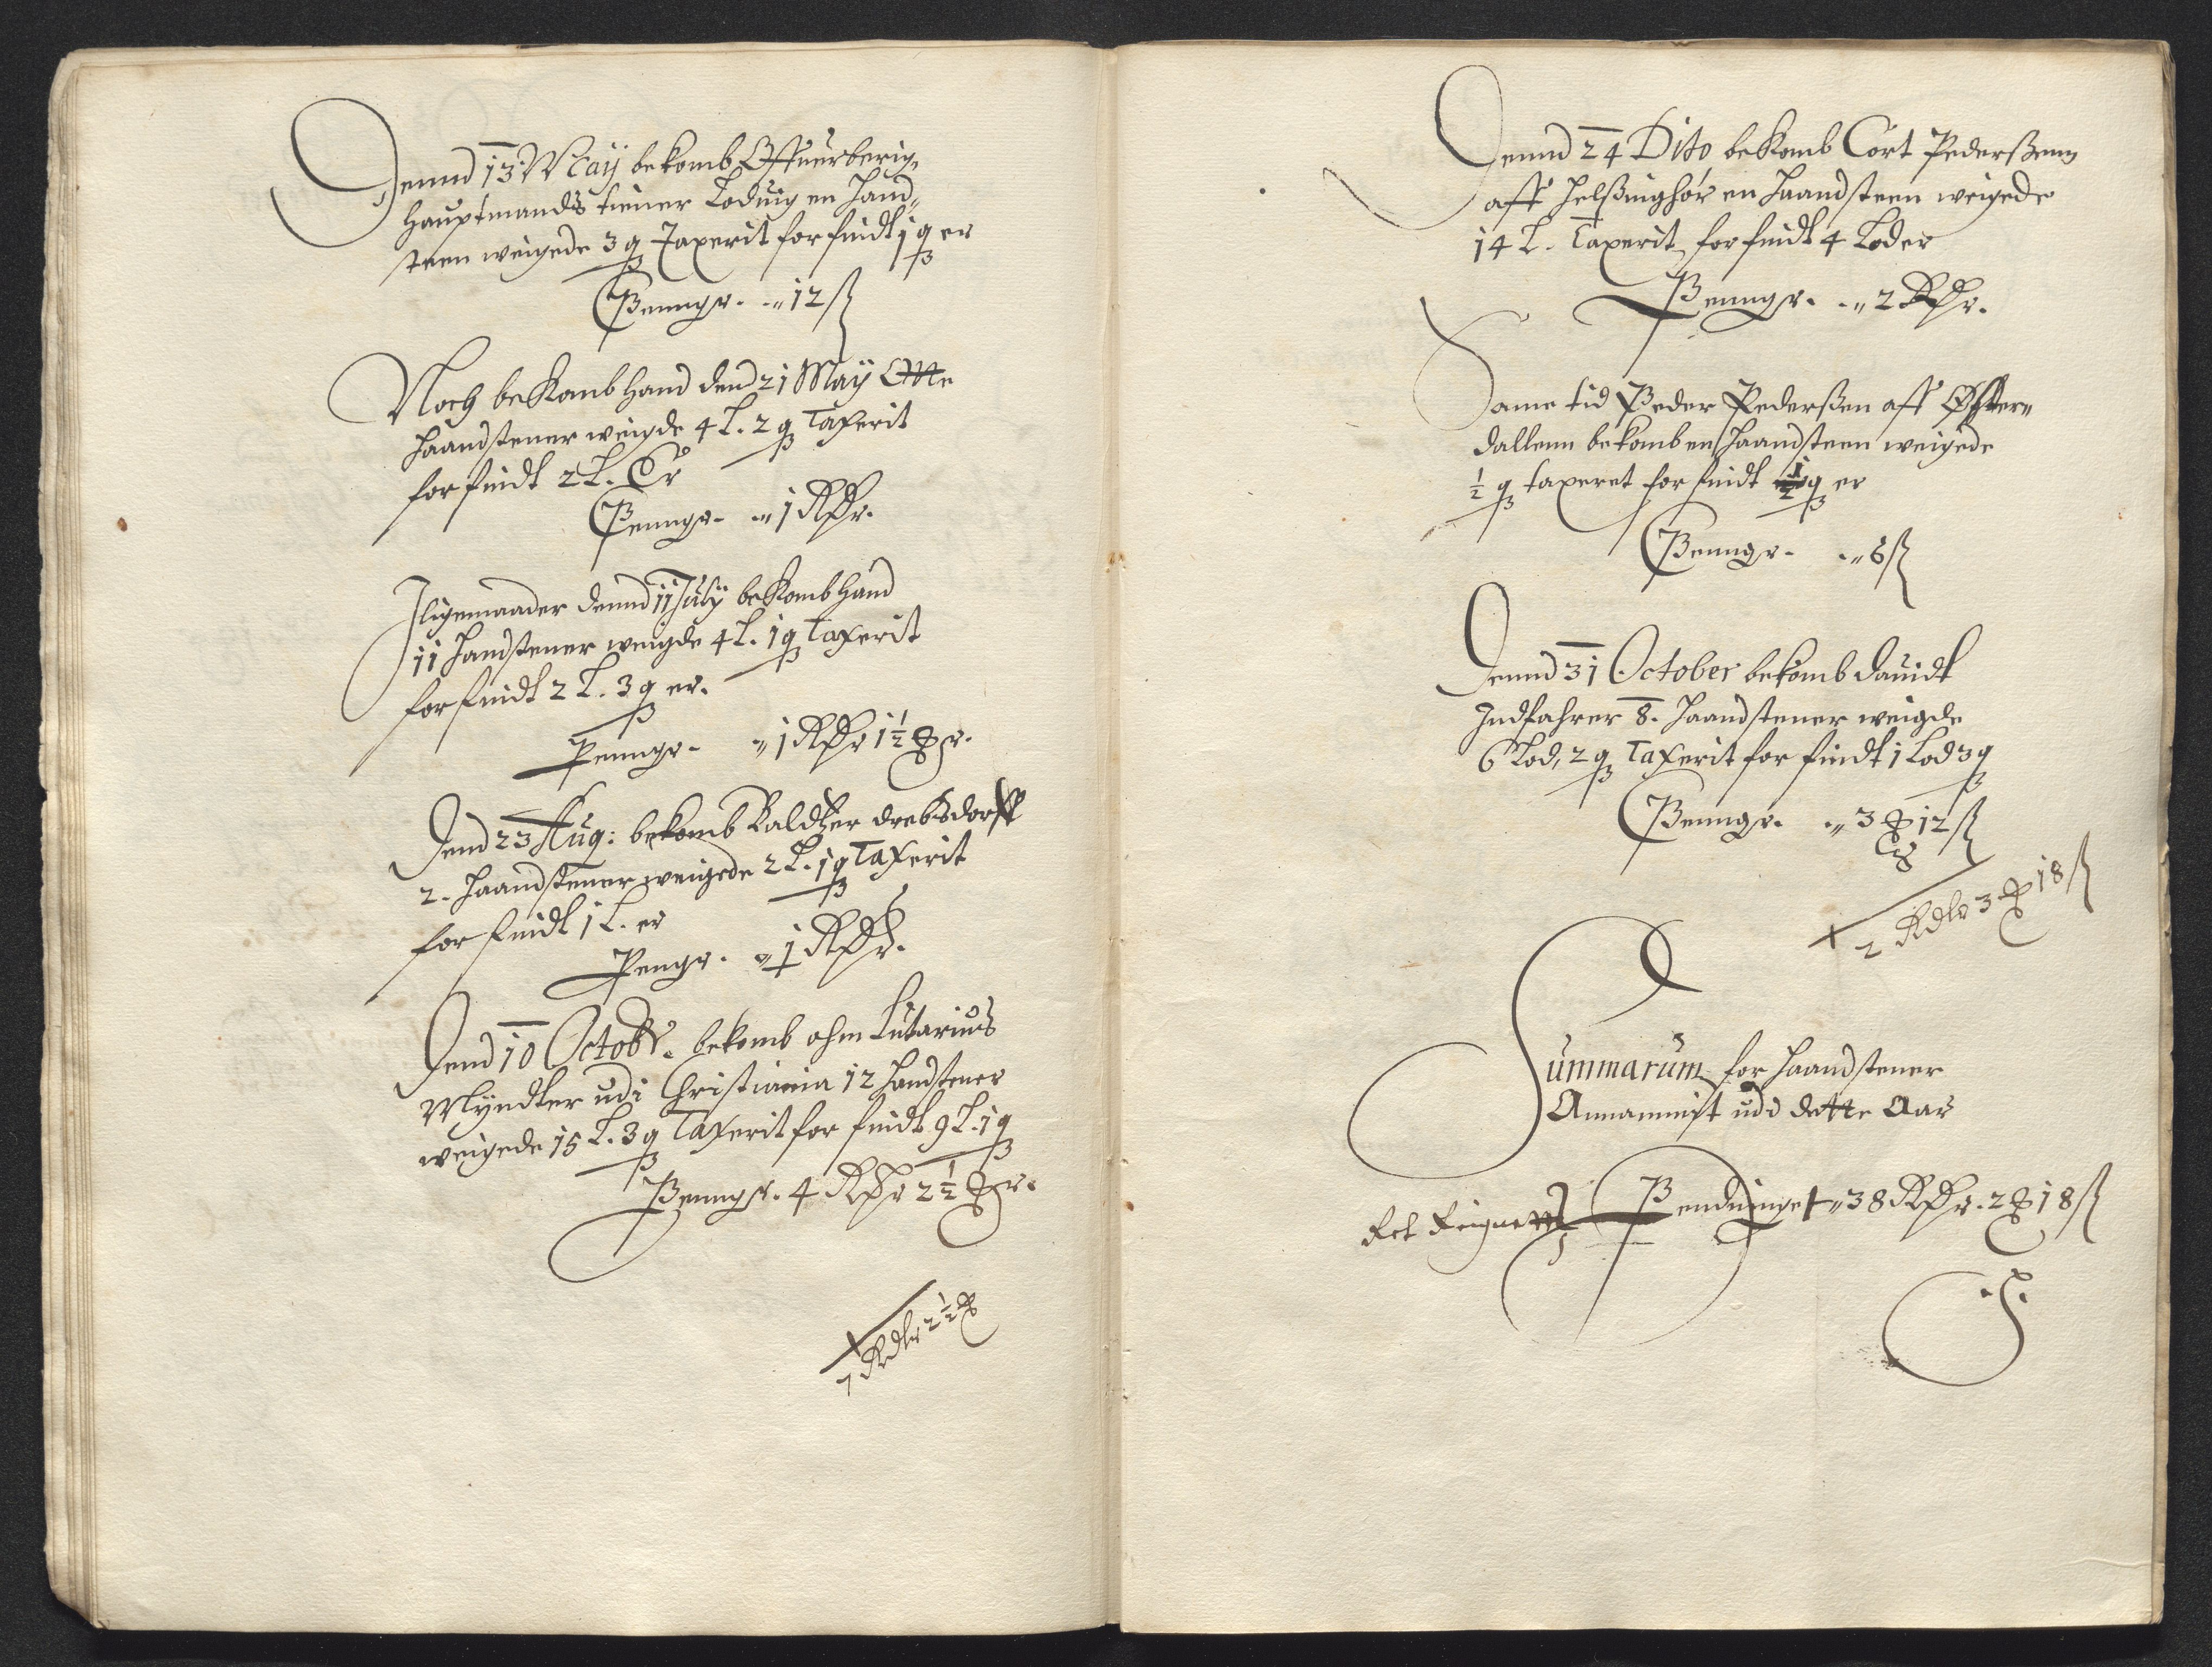 Dennd 13 May bekomb Offuerberig,
Hauptmands tiener Loduig en Hand,
steen weigede 3 qß Taxerit for findt 1 qß er
Penngr. -" 12 ß
Noch bekomb hand dend 21 May Otte
Haandstener weigde 4 L. 2 qß Taxerit
for findt 2 L. Er
Penngr. -" 1 RDr.
Iligemaader dennd 11 July bekomb hand
11 Handstener weigde 4 L. 1 qß Taxerit
for findt 2 L. 3 qß er.
Penngr. " 1 RDr 1½ ℔r.
Dend 23 Aug: bekomb Baldtzer drebsdorff
2. Haandstener weigede 2 L. 1 qß Taxerit
for findt 1 L. er
Pengr. " 1 RDr.
Dend 10 Octobr. bekomb ohm Lutarius
Myndter udi Christiania 12 Handstener
weigede 15 L. 3 qß Taxerit for findt 9 L. 1 qß
Penngr. 4 RDr 2½ ℔r.
7 Rdlr 2½ ℔
Dennd 24 Dito bekomb Cort Pederßenn
aff Helßinghør en Haandsteen weigede
14 L. Taxerit for findt 4 Loder
Penngr. -" 2 RDr.
Same tid Peder Pederßen aff Øster=
dallenn bekomb en Haandsteen weigede
½ qß taxeret for findt ½ qß er
Penngr. -" 6 ß
Dennd 31 October bekomb Dauidt
Indfahrer 8. Haandstener weigde
6 Lod, 2 qß Taxerit for findt 1 Lod 3 qß
Penngr. " 3 ℔ 12 ß
2 Rdlr 3 ℔ 18 ß
Summarum for Haandstener
Annammit udi dette Aar
Ret Reignett Penduinge " 38 RDr. 2 ℔ 18 ß